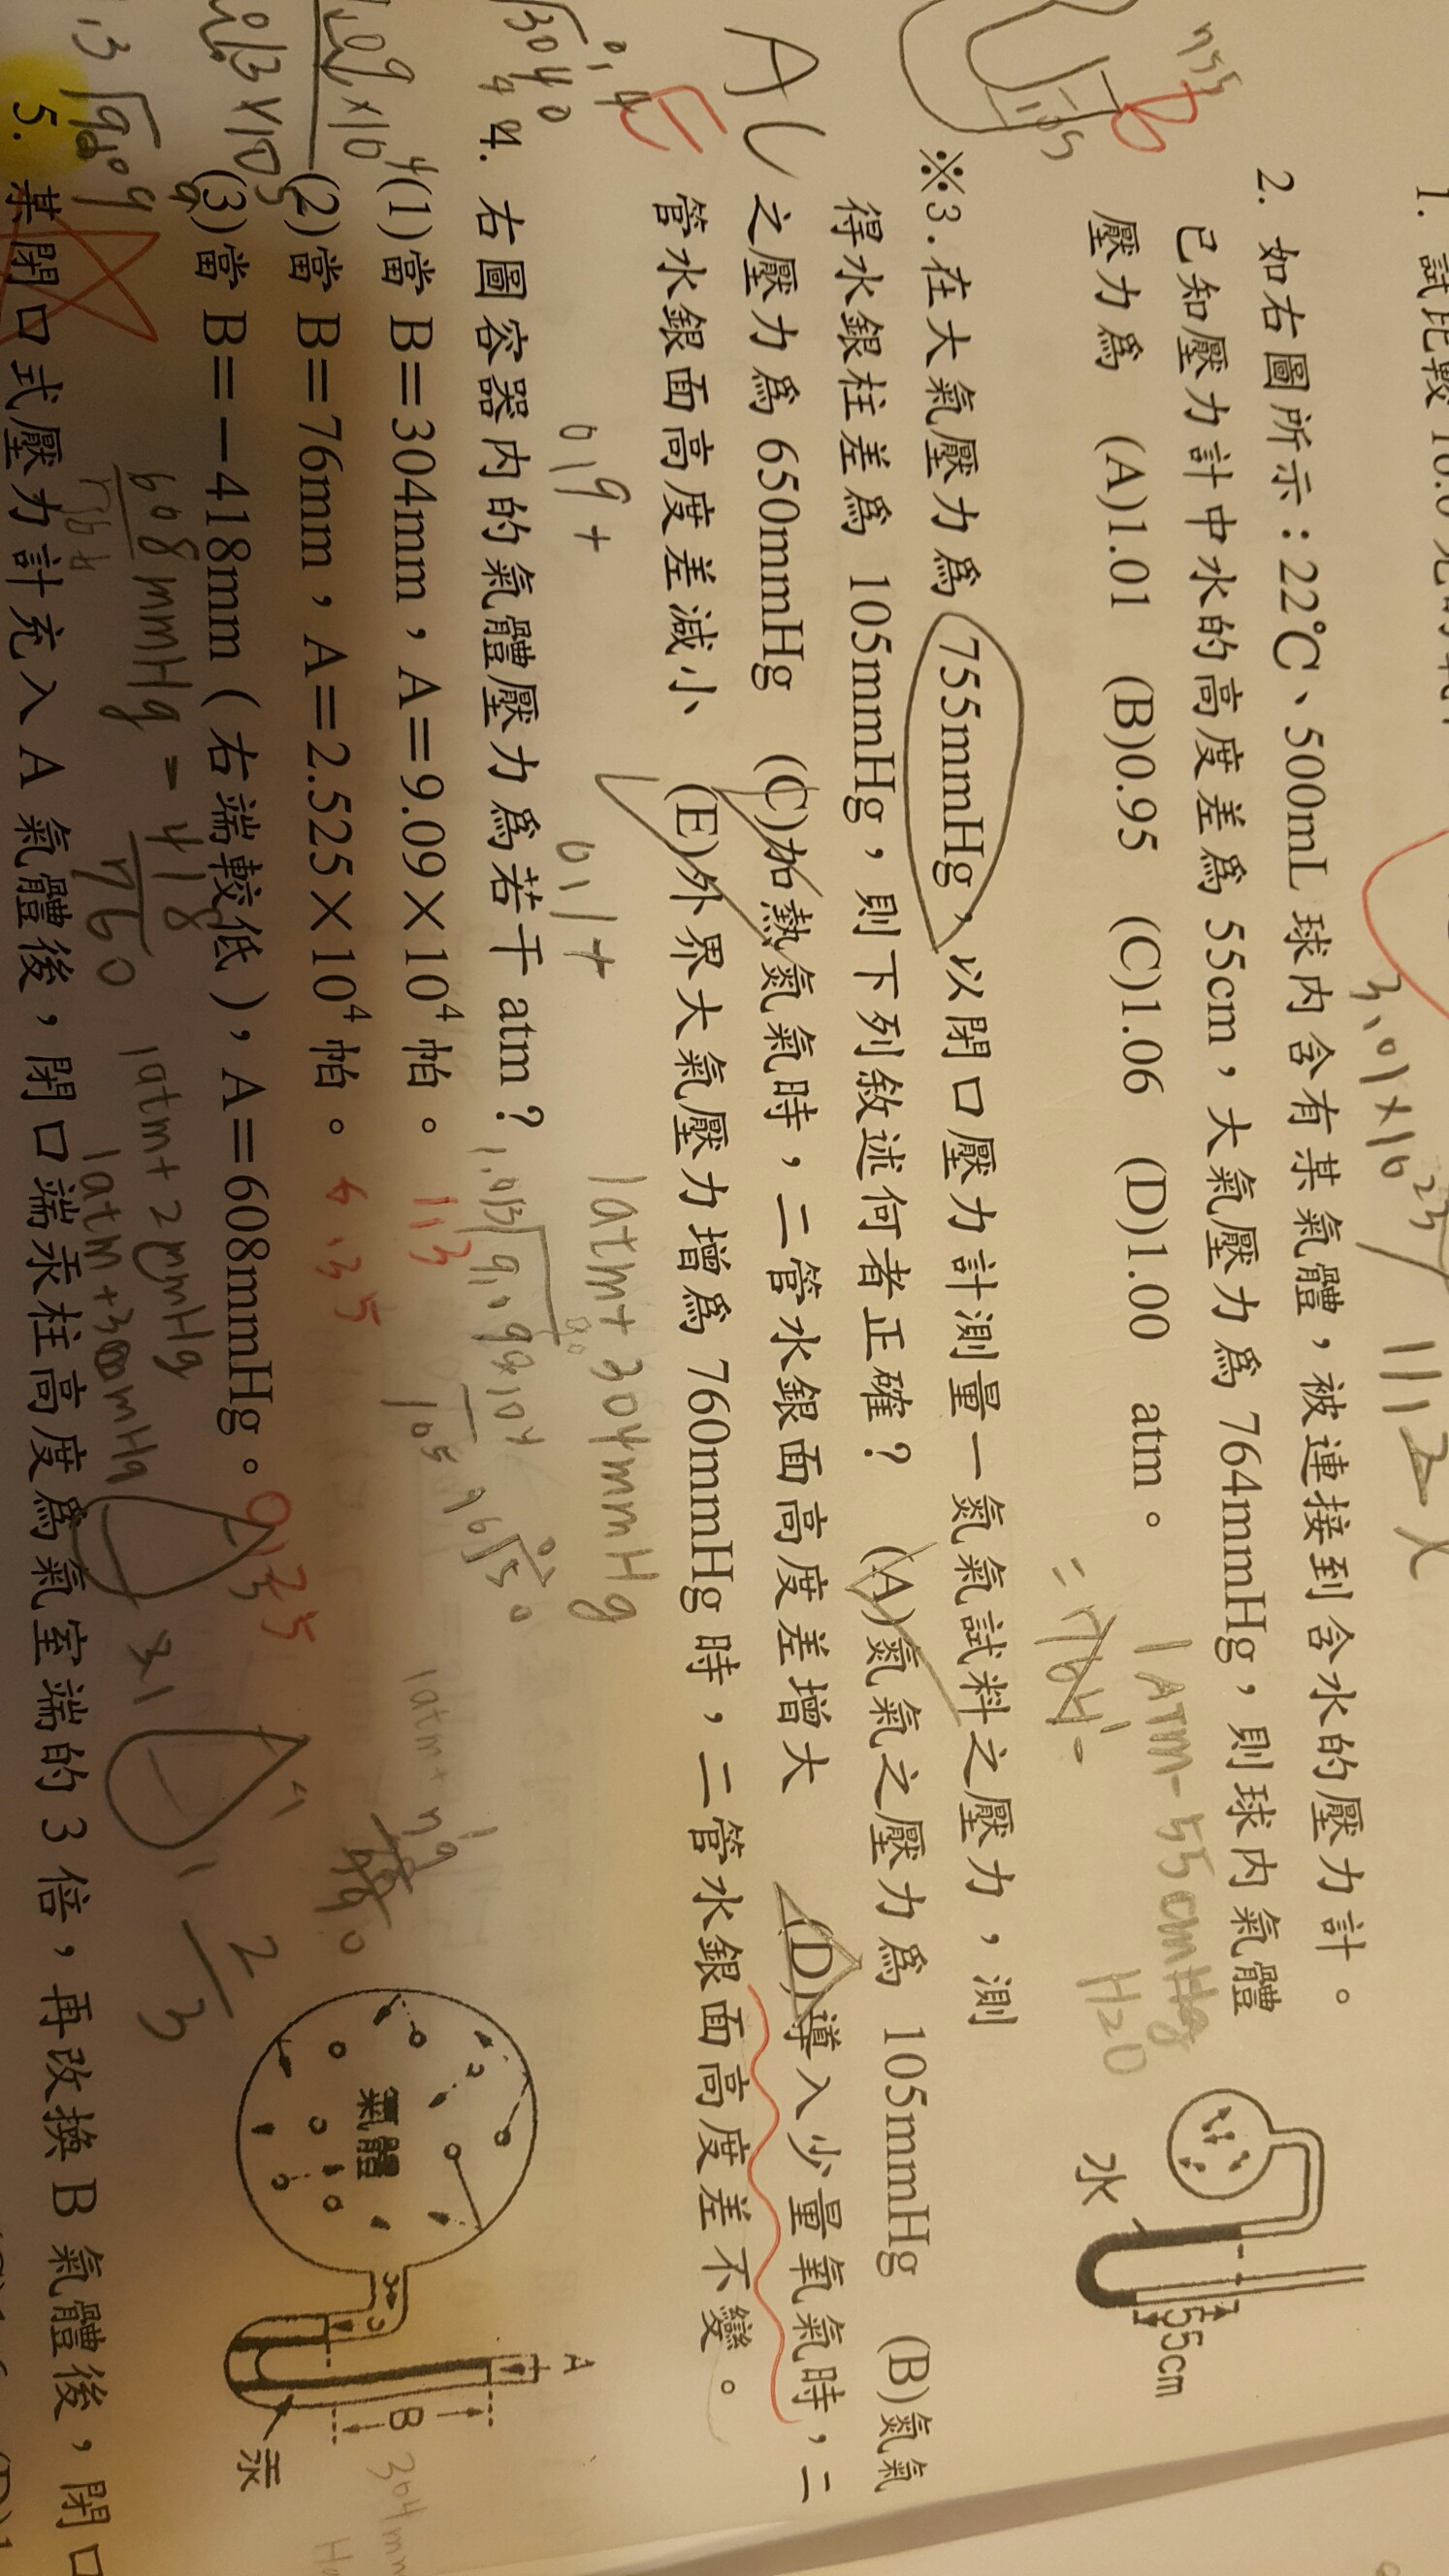 1. 試比較 10.0
3.01×10²³
112
2. 如右圖所示：22℃、500mL 球內含有某氣體，被連接到含水的壓力計。
已知壓力計中水的高度差為 55cm，大氣壓力為 764mmHg，則球內氣體
壓力為 (A)1.01 (B)0.95 (C)1.06 (D)1.00 atm。
1ATM-55cmHg
H2O
水
55cm
B
※3.在大氣壓力為 755mmHg，以閉口壓力計測量一氮氣試料之壓力，測
得水銀柱差為 105mmHg，則下列敘述何者正確？ (A)氮氣之壓力為 105mmHg (B)氮氣
之壓力為 650mmHg (C)加熱氮氣時，二管水銀面高度差增大 (D)導入少量氧氣時，二
管水銀面高度差減小 (E)外界大氣壓力增為 760mmHg 時，二管水銀面高度差不變。
AC
E
0.9+ 0.1+ 1atm+304mmHg
4. 右圖容器內的氣體壓力為若干 atm？
(1)當 B＝304mm，A＝9.09×10⁴ 帕。 1.3
(2)當 B＝76mm，A＝2.525×10⁴ 帕。 0.35
(3)當 B＝－418mm（右端較低），A＝608mmHg。 0.25
氣體
A
B
汞
304mm
608mmHg - 418
760
1atm+2mmHg
1atm+300mmHg
2
3
5. 某閉口式壓力計充入 A 氣體後，閉口端汞柱高度為氣室端的 3 倍，再改換 B 氣體後，閉口